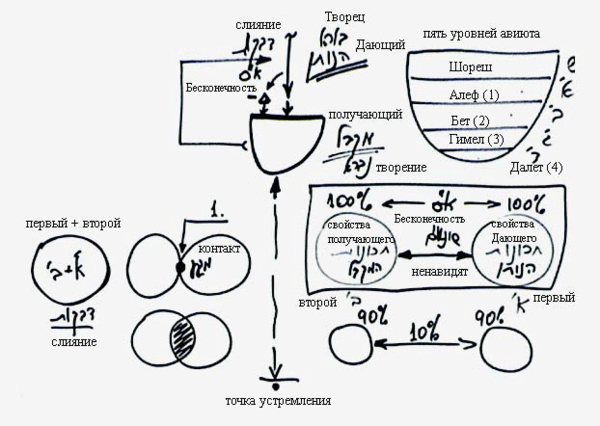 слияние
דבקות
א"ס
Бесконечность
Творец
בורא
Дающий
הנותן
получающий
מקבל
творение
נברא
пять уровней авиюта
Шореш
ש
Алеф (1)
א'
Бет (2)
ב'
Гимел (3)
ג'
Далет (4)
ד'
первый + второй
א'+ב'
דבקות
слияние
1.
контакт
מגע
100%
א"ס
100%
Бесконечность
свойства
получающего
תכונות
המקבל
שונאים
ненавидят
свойства
Дающего
תכונות
הנותן
второй
ב'
א'
первый
90%
10%
90%
точка устремления